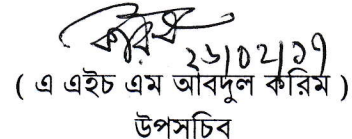 করিম
২১/০২/১৭
( এ এইচ এম আবদুল করিম )
উপসচিব